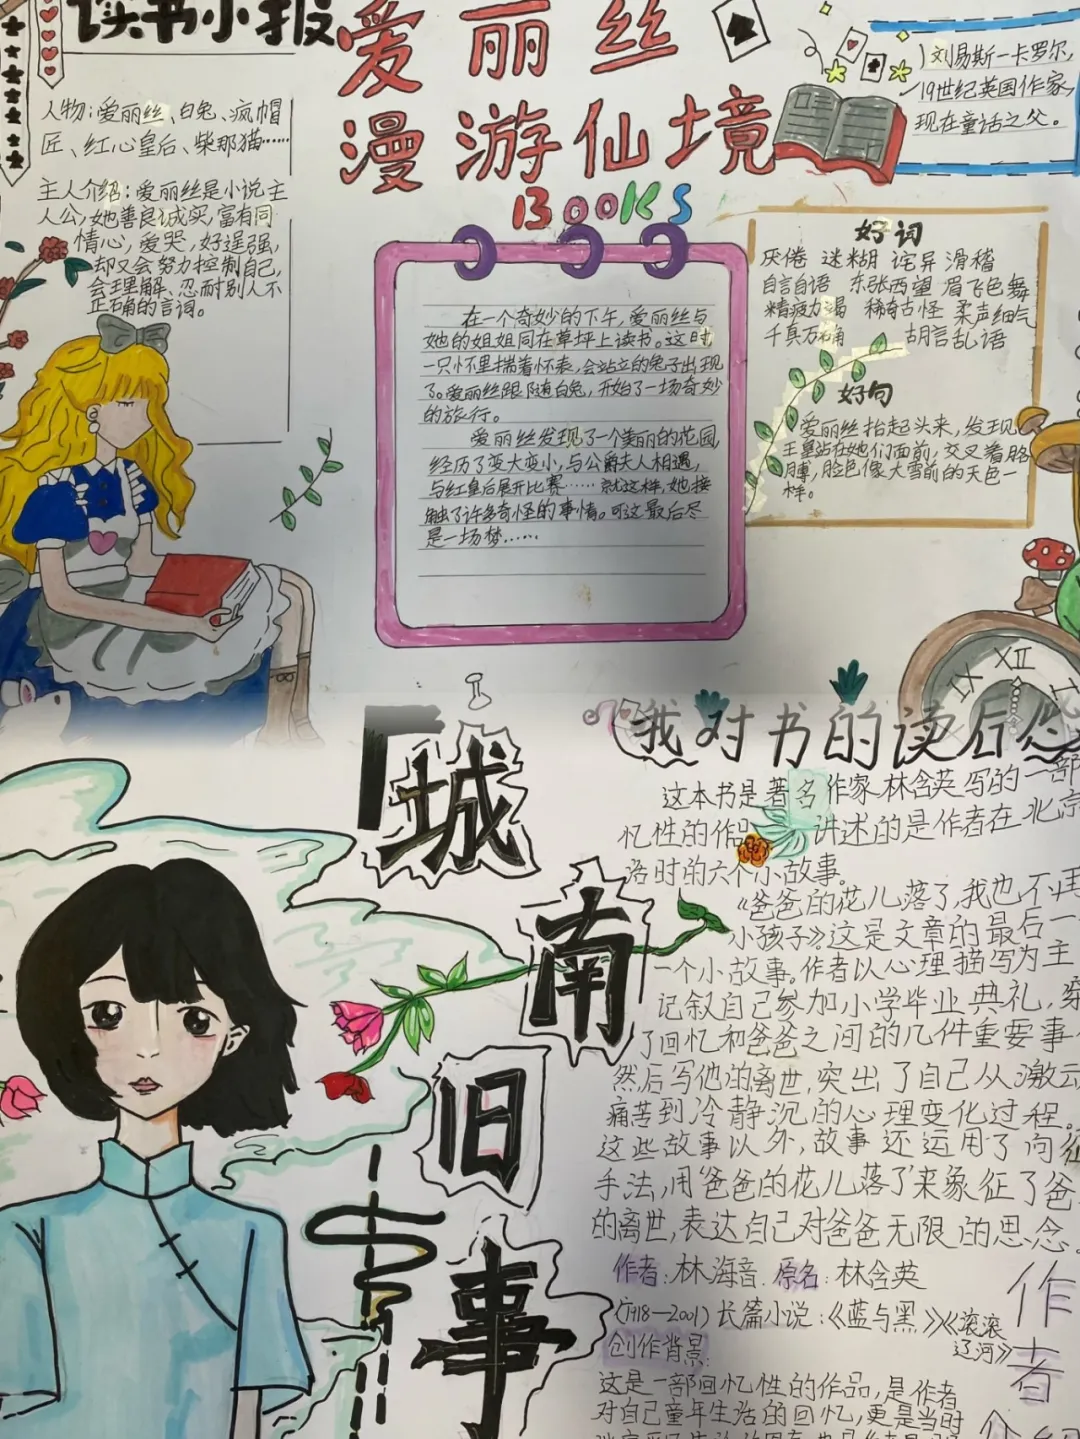 读书小报
爱丽丝
漫游仙境
BOOKS
刘易斯一卡罗尔,
19世纪英国作家,
现在童话之父。
人物:爱丽丝、白兔、疯帽
匠、红心皇后、柴那猫……
主人介绍:爱丽丝是小说主
人公,她善良诚实,富有同
情心,爱哭,好逞强,
却又会努力控制自己,
会理解、忍耐别人不
正确的言词。
在一个奇妙的下午,爱丽丝与
她的姐姐同在草坪上读书。这时
一只怀里揣着怀表,会站立的兔子出现
了。爱丽丝跟随白兔,开始了一场奇妙
的旅行。
爱丽丝发现了一个美丽的花园,
经历了变大变小,与公爵夫人相遇,
与红皇后展开比赛……就这样,她接
触了许多奇怪的事情。可这最后尽
是一场梦……
好词
厌倦 迷糊 诧异 滑稽
自言自语 东张西望 眉飞色舞
精疲力竭 稀奇古怪 柔声细气
千真万确 胡言乱语
好句
爱丽丝抬起头来,发现
王皇站在她们面前,交叉着胳
膊,脸色像大雪前的天色一
样。
XII
IX
城
南
旧
事
我对书的读后
这本书是著名作家林含英写的一部
忆性的作品 讲述的是作者在北京
活时的六个小故事。
《爸爸的花儿落了,我也不再
小孩子》这是文章的最后一
一个小故事。作者以心理描写为主
记叙自己参加小学毕业典礼,穿
了回忆和爸爸之间的几件重要事
然后写他的离世,突出了自己从激动
痛苦到冷静沉的心理变化过程。
这些故事以外,故事还运用了向征
手法,用"爸爸的花儿落了"来象征了爸
的离世,表达自己对爸爸无限的思念。
作者:林海音 原名:林含英
(1918—2001)长篇小说:《蓝与黑》《滚滚
辽河》
创作背景:
这是一部回忆性的作品,是作者
对自己童年生活的回忆,更是当时
作
者
介
绍